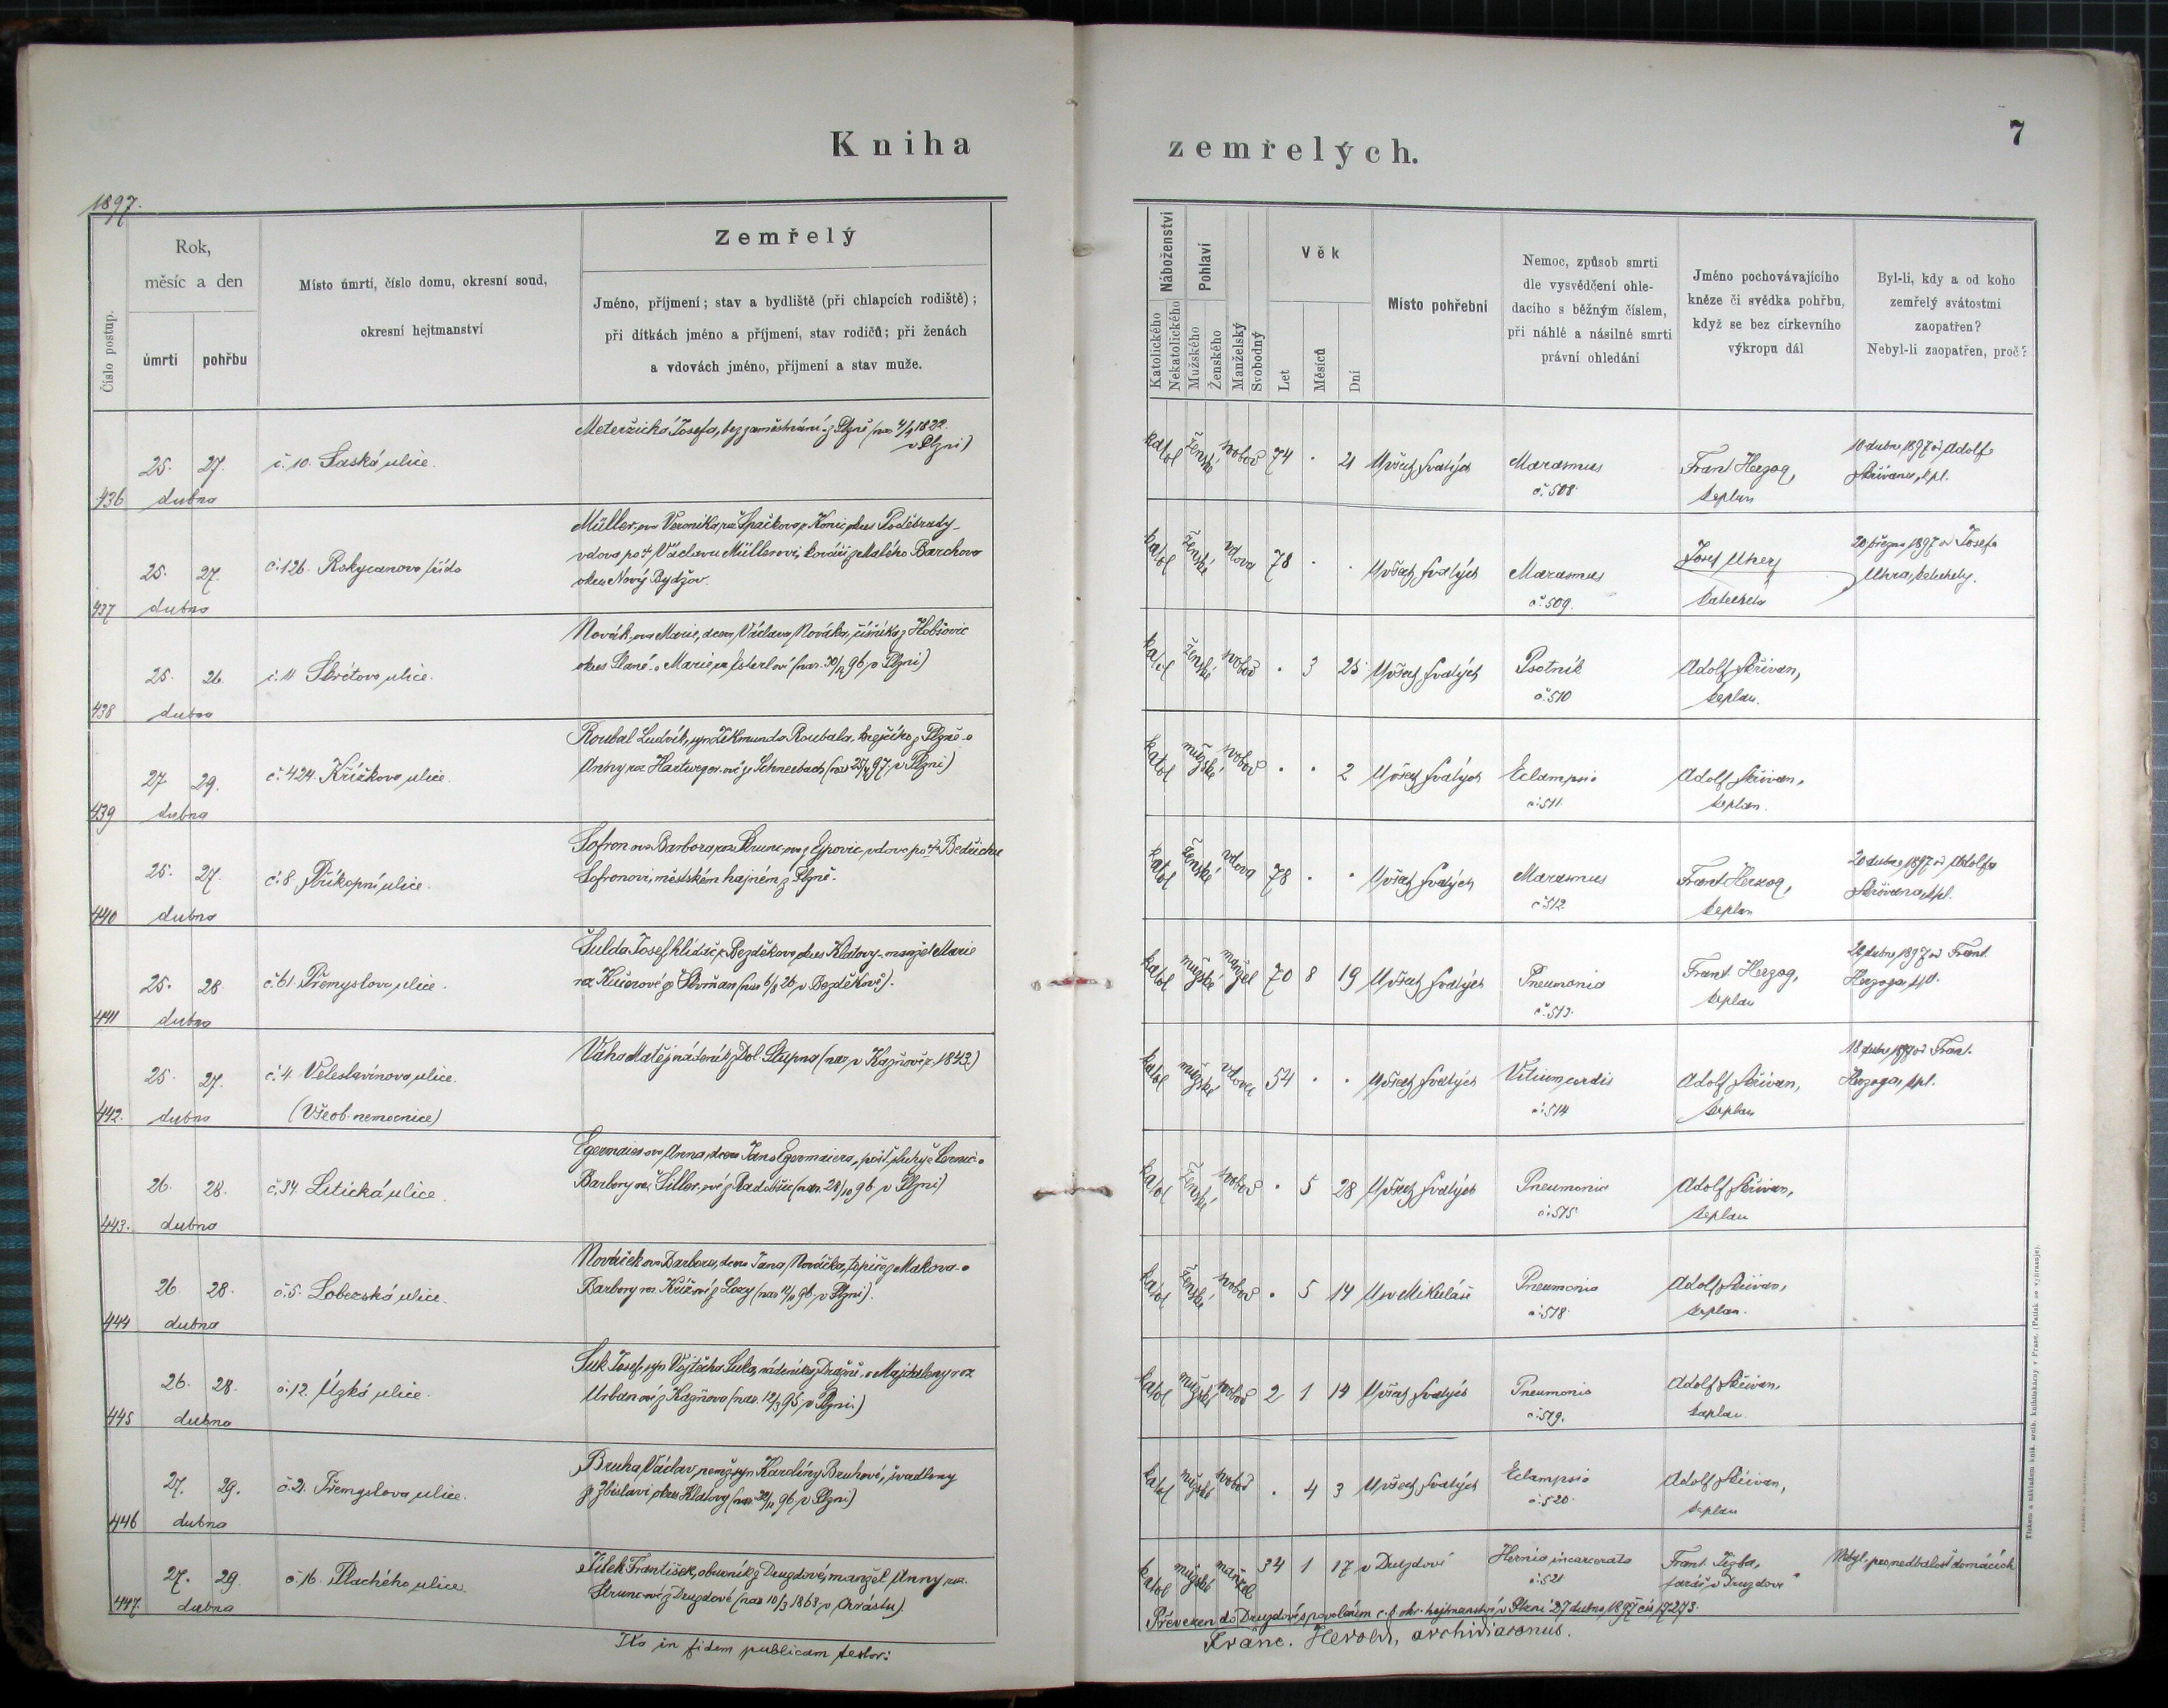 Kniha
zemřelých.
7
1897.
Číslo postup.
Rok,
měsíc a den
úmrtí
pohřbu
Místo úmrtí, číslo domu, okresní soud,
okresní hejtmanství
Zemřelý
Jméno, příjmení; stav a bydliště (při chlapcích rodiště);
při dítkách jméno a příjmení, stav rodičů; při ženách
a vdovách jméno, příjmení a stav muže.
Náboženství
Katolického
Nekatolického
Pohlaví
Mužského
Ženského
Manželský
Svobodný
Věk
Let
Měsíců
Dní
Místo pohřební
Nemoc, způsob smrti
dle vysvědčení ohle-
dacího s běžným číslem,
při náhlé a násilné smrti
právní ohledání
Jméno pochovávajícího
kněze či svědka pohřbu,
když se bez církevního
výkropu dál
Byl-li, kdy a od koho
zemřelý svátostmi
zaopatřen?
Nebyl-li zaopatřen, proč?
436 25. 27. dubna
č. 10. Saská ulice.
Josefa, bez zaměstnání z Plzně (nar. 4/4 1822
v Plzni)
katol ženské svobod 74 · 21 U všech svatých
Marasmus
č. 508.
Frant Herzog,
kaplan
10 dubna 1897 od Adolfa
Skřivana, kpl.
437 25. 27. dubna
č. 126. Rokycanova třída
Müller-ova Veronika, roz. Špačkova, z Konic, okres Poděbrady-
vdova po † Václavu Müllerovi, kováři z Malého Barchova
okres Nový Bydžov.
katol ženské vdova 78 · · U všech svatých
Marasmus
č. 509.
Josef Uher,
katecheta
20 března 1897 od Josefa
Uhra, katechety.
438 25. 26. dubna
č. 11 Skrétova ulice.
Novák-ova Marie, dcera Václava Nováka, číšníka z Hobšovic
okres Slané a Marie roz. (nar. 30/12 96 v Plzni)
katol ženské svobod · 3 25 U všech svatých
Psotník
č. 510
Adolf Skřivan,
kaplan.
439 27 29. dubna
č. 424. Křížkova ulice.
Roubal Ludvík, syn Zikmunda Roubala, krejčího z Plzně a
Anny roz. Hartweger-ové z Schneebach (nar 25/4 97 v Plzni)
katol mužské svobod · · 2 U všech svatých
Eclampsia
č. 511.
Adolf Skřivan,
kaplan.
440 25. 27. dubna
č. 8. Příkopní ulice.
Sofron ova Barbora, roz. Strunc-ova z Ejpovic, vdova po † Bedřichu
Sofronovi, městském hajném z Plzně.
katol ženské vdova 78 · · U všech svatých
Marasmus
č. 512
Frant Herzog,
kaplan
20 dubna 1897 od Adolfa
Skřivana, kpl.
441 25. 28 dubna
č. 61. Přemyslova ulice.
Šulda Josef, hlídač z Bezděkova, okres Klatovy - manžel Marie
roz Kučerové ze Skvrňan (nar 6/8 26 v Bezděkově).
katol mužské manžel 70 8 19 U všech svatých
Pneumonia
č. 513.
Frant. Herzog,
kaplan
22 dubna 1897 od Frant.
Herzoga, kpl.
442. 25 27. dubna
č. 4. Veleslavínova ulice.
(Všeob. nemocnice)
Váha Matěj nádeník z Dol. Stupna (nar. v Kaznově r. 1843.)
katol mužské vdovec 54 · · U všech svatých
Vitium cordis
č. 514
Adolf Skřivan,
kaplan
18 dubna 1897 od Frant.
Herzoga, kpl.
443. 26. 28. dubna
č. 34. Litická ulice.
Egermaier-ova Anna, dcera Jana Egermaiera,
Barbory roz. (nar. 28/10 96 v Plzni)
katol ženské svobod · 5 28 U všech svatých
Pneumonia
č. 515
Adolf Skřivan,
kaplan
444 26. 28. dubna
č. 5. Lobezská ulice.
Nováček ova Barbora, dcera Jana Nováčka, topiče z Makova a
Barbory roz. Křížové z Lozy (nar 12/11 96 v Plzni).
katol ženské svobod · 5 14 U sv Mikuláše
Pneumonia
č. 518.
Adolf Skřivan,
kaplan.
445 26. 28. dubna
č. 12. Úzká ulice.
Suk Josef, syn Vojtěcha Suka, nádeníka z Dražně a Majdaleny roz
Urbanové z Kaznova (nar. 12/3 95 v Plzni)
katol mužské svobod 2 1 14 U všech svatých
Pneumonia
č. 519.
Adolf Skřivan,
kaplan.
446 27. 29. dubna
č. 21. Přemyslova ulice.
Bruha Václav, nemž. syn Karolíny Bruhové, švadleny
ze Zbislavi, okres Klatovy (nar. v Plzni)
katol mužské svobod · 4 3 U všech svatých
Eclampsia
č. 520.
Adolf Skřivan,
kaplan
447. 27. 29. dubna
č. 16. Plachého ulice.
Jílek František, obuvník z Druzdové, manžel Anny roz.
Struncové z Druzdové (nar 10/3 1863 v Chrástu).
katol mužské manžel 34 1 17 v Druzdové
Hernia incarcerata
č. 521
Frant. Jízba,
farář v Druzdové
Nebyl, pro nedbalost domácích
Převezen do Druzdové s povolením c. k. okr. hejtmanství v Plzni 27 dubna 1897 čís. 17273.
Ita in fidem publicam testor:
Franc. Herold, archidiaconus.
Tiskem a nákladem kníž. arcib. knihtiskárny v Praze. (Patisk se vyhrazuje).